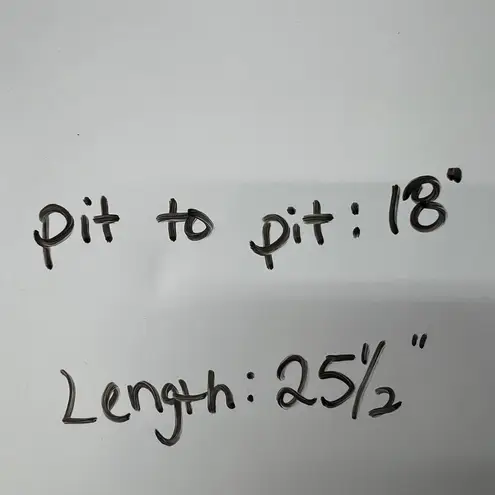 pit to pit: 18"
Length: 25 1/2"